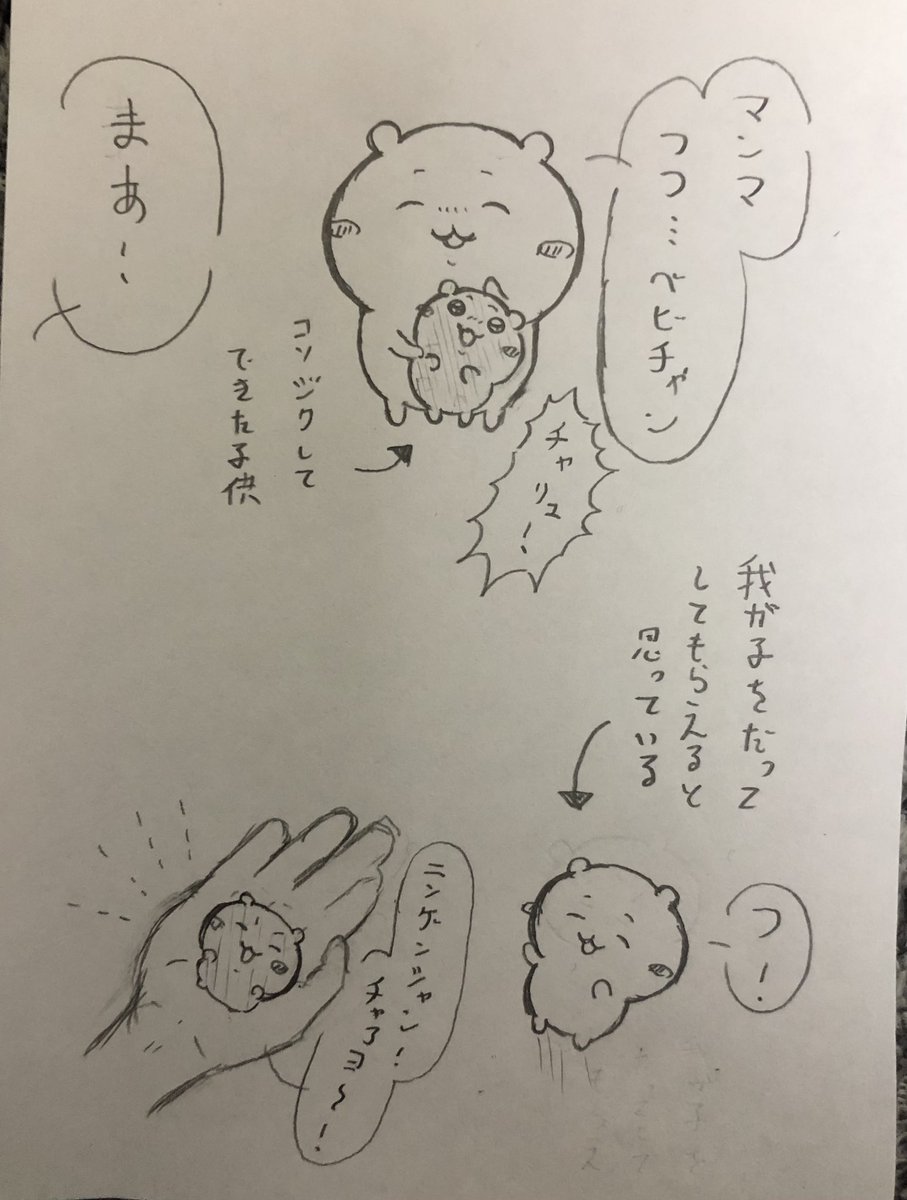 マンマ
つつ…ベビチャン
まあ〜
コソジクして
できた子供
チャリコ!
我が子をだって
してもらえると
思っている
つー!
ニンゲンシャン!
チャアヨ〜!